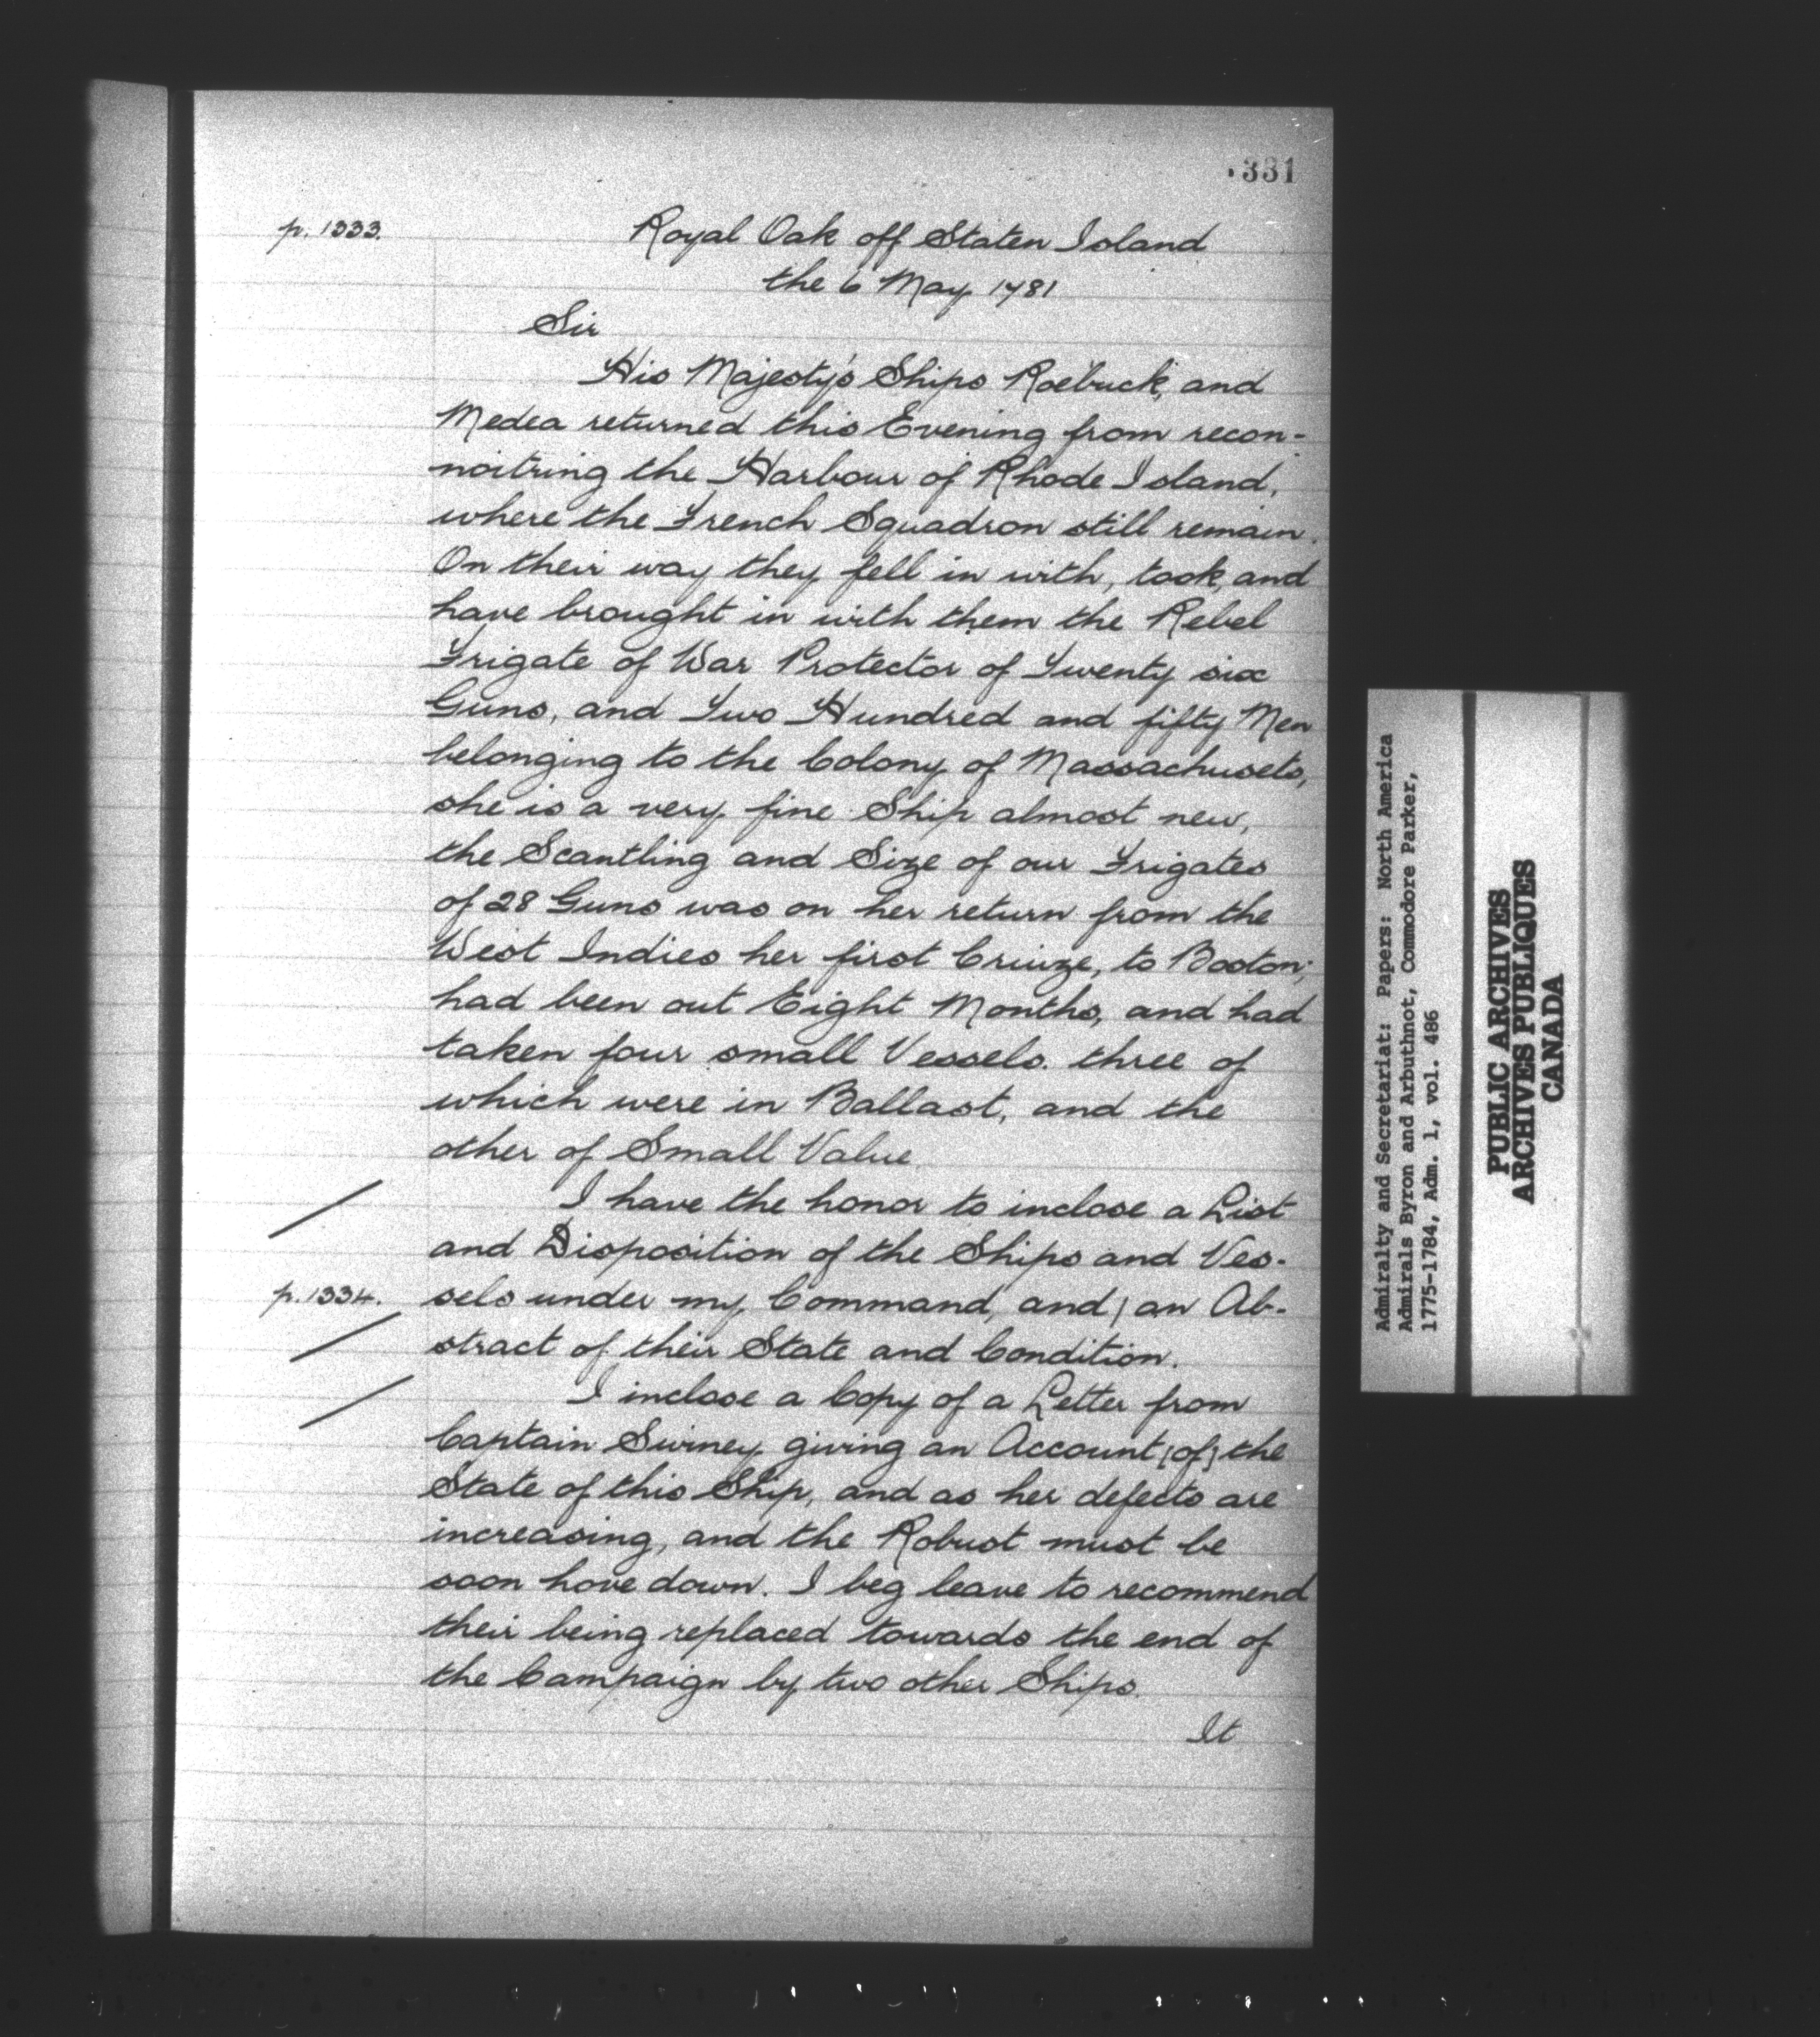 331
p. 1333.
Royal Oak off Staten Island
the 6 May 1781
Sir
His Majesty's Ships Roebuck, and
Medea returned this Evening from recon-
noitring the Harbour of Rhode Island,
where the French Squadron still remain.
On their way they fell in with, took, and
have brought in with them the Rebel
Frigate of War Protector of Twenty six
Guns, and Two Hundred and fifty Men
belonging to the Colony of Massachusets,
she is a very fine Ship almost new,
the Scantling and Size of our Frigates
of 28 Guns was on her return from the
West Indies her first Cruize, to Boston;
had been out Eight Months, and had
taken four small Vessels. three of
which were in Ballast, and the
other of Small Value.
I have the honor to inclose a List
and Disposition of the Ships and Ves-
p. 1334.
sels under my Command, and / an Ab-
stract of their State and Condition.
I inclose a Copy of a Letter from
Captain Swiney giving an Account [of] the
State of this Ship, and as her defects are
increasing, and the Robust must be
soon hove down. I beg leave to recommend
their being replaced towards the end of
the Campaign by two other Ships.
It
Admiralty and Secretariat: Papers: North America
Admirals Byron and Arbuthnot, Commodore Parker,
1775-1784, Adm. 1, vol. 486
PUBLIC ARCHIVES
ARCHIVES PUBLIQUES
CANADA